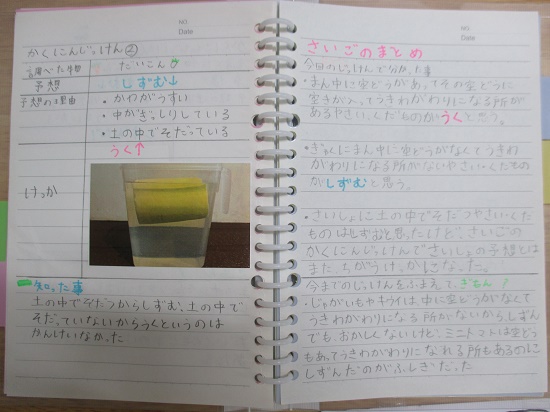 NO.
Date
かくにんじっけん②
調べた物
だいこん
予想
しずむ↓
予想の理由
・かわがうすい
・中がぎっしりしている
・土の中でそだっている
けっか
うく↑
知った事
土の中でそだつからしずむ、土の中で
そだっていないからうくというのは
かんけいなかった
NO.
Date
さいごのまとめ
今回のじっけんで分かった事
・まん中に空どうがあってその空どうに
空きが入ってうきわがわりになる所が
あるやさい、くだものがうくと思う。
・ぎゃくにまん中に空どうがなくてうきわ
がわりになる所がないやさい、くだもの
がしずむと思う。
・さいしょに土の中でそだつやさい・くだ
ものはしずむと思ったけど、さいごの
かくにんじっけんでさいしょの予想とは
まったくちがうけっかになった。
今までのじっけんをふまえて、ぎもん?
・じゃがいもやキウイは中に空どうがなくて
うきわがわりになる所がないからしずん
でも、おかしくないけど、ミニトマトは空どう
もあってうきわがわりになれる所もあるのに
しずんだのがふしぎだった